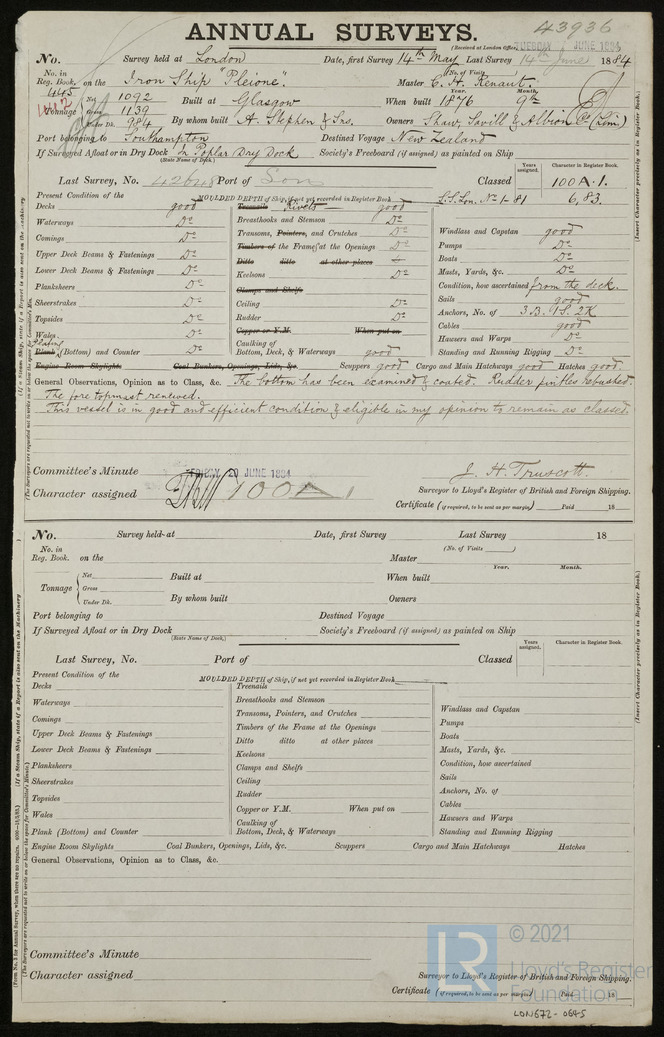 ANNUAL SURVEYS. 43936
(Received at London Office, TUESDAY JUNE 1884
No. Survey held at London Date, first Survey 14th May Last Survey 14th June 1884
No. in Reg. Book. 445 on the Iron Ship "Pleione". (No. of Visits Master C. H. Renaut.
Tonnage Net 1092 Built at Glasgow When built 1876 Year. Month. 9mo
Gross 1139
Under Dk. 984 By whom built A. Stephen & Sns. Owners Shaw, Savill & Albion Co (Lim)
Port belonging to Southampton Destined Voyage New Zealand
If Surveyed Afloat or in Dry Dock In Poplar Dry Dock Society's Freeboard (if assigned) as painted on Ship
(State Name of Dock.)
Years assigned. Character in Register Book.
Last Survey, No. 42648 Port of Lon Classed 100A.1.
MOULDED DEPTH of Ship, if not yet recorded in Register Book S.S.Lon. No 1 81 6,83.
Present Condition of the
Decks good Treenails Rivets good
Waterways Do Breasthooks and Stemson Do Windlass and Capstan good
Comings Do Transoms, Pointers, and Crutches Do Pumps Do
Upper Deck Beams & Fastenings Do Timbers of the Frame at the Openings Do Boats Do
Lower Deck Beams & Fastenings Do Ditto ditto at other places Masts, Yards, &c. Do
Planksheers Do Keelsons Do Condition, how ascertained from the deck.
Sheerstrakes Do Clamps and Shelfs Sails good
Topsides Do Ceiling Do Anchors, No. of 3.B. 1S. 2K
Wales Do Rudder Do Cables good
Plating Plank (Bottom) and Counter Do Copper or Y.M. When put on Hawsers and Warps Do
Caulking of Bottom, Deck, & Waterways good Standing and Running Rigging Do
Engine Room Skylights Coal Bunkers, Openings, Lids, &c. Scuppers good Cargo and Main Hatchways good Hatches good.
General Observations, Opinion as to Class, &c. The bottom has been examined & coated. Rudder pintles rebushed.
The fore topmast renewed.
This vessel is in good and efficient condition & eligible in my opinion to remain as classed.
Committee's Minute FRIDAY 20 JUNE 1884 J. H. Truscott.
Character assigned 100A1 Surveyor to Lloyd's Register of British and Foreign Shipping.
Certificate (if required, to be sent as per margin) Paid 18
No. Survey held at Date, first Survey Last Survey 18
No. in Reg. Book. on the (No. of Visits )
Master
Tonnage Net Built at When built Year. Month.
Gross
Under Dk. By whom built Owners
Port belonging to Destined Voyage
If Surveyed Afloat or in Dry Dock Society's Freeboard (if assigned) as painted on Ship
(State Name of Dock,)
Years assigned. Character in Register Book.
Last Survey, No. Port of Classed
Present Condition of the MOULDED DEPTH of Ship, if not yet recorded in Register Book
Decks Treenails
Waterways Breasthooks and Stemson Windlass and Capstan
Comings Transoms, Pointers, and Crutches Pumps
Upper Deck Beams & Fastenings Timbers of the Frame at the Openings Boats
Lower Deck Beams & Fastenings Ditto ditto at other places Masts, Yards, &c.
Planksheers Keelsons Condition, how ascertained
Sheerstrakes Clamps and Shelfs Sails
Topsides Ceiling Anchors, No. of
Wales Rudder Cables
Plank (Bottom) and Counter Copper or Y.M. When put on Hawsers and Warps
Caulking of Bottom, Deck, & Waterways Standing and Running Rigging
Engine Room Skylights Coal Bunkers, Openings, Lids, &c. Scuppers Cargo and Main Hatchways Hatches
General Observations, Opinion as to Class, &c.
Committee's Minute
Character assigned Surveyor to Lloyd's Register of British and Foreign Shipping.
Certificate (if required, to be sent as per margin) Paid 18
LR © 2021
Lloyd's Register
Foundation
LON672-0645
(Insert Character precisely as in Register Book.)
(Insert Character precisely as in Register Book.)